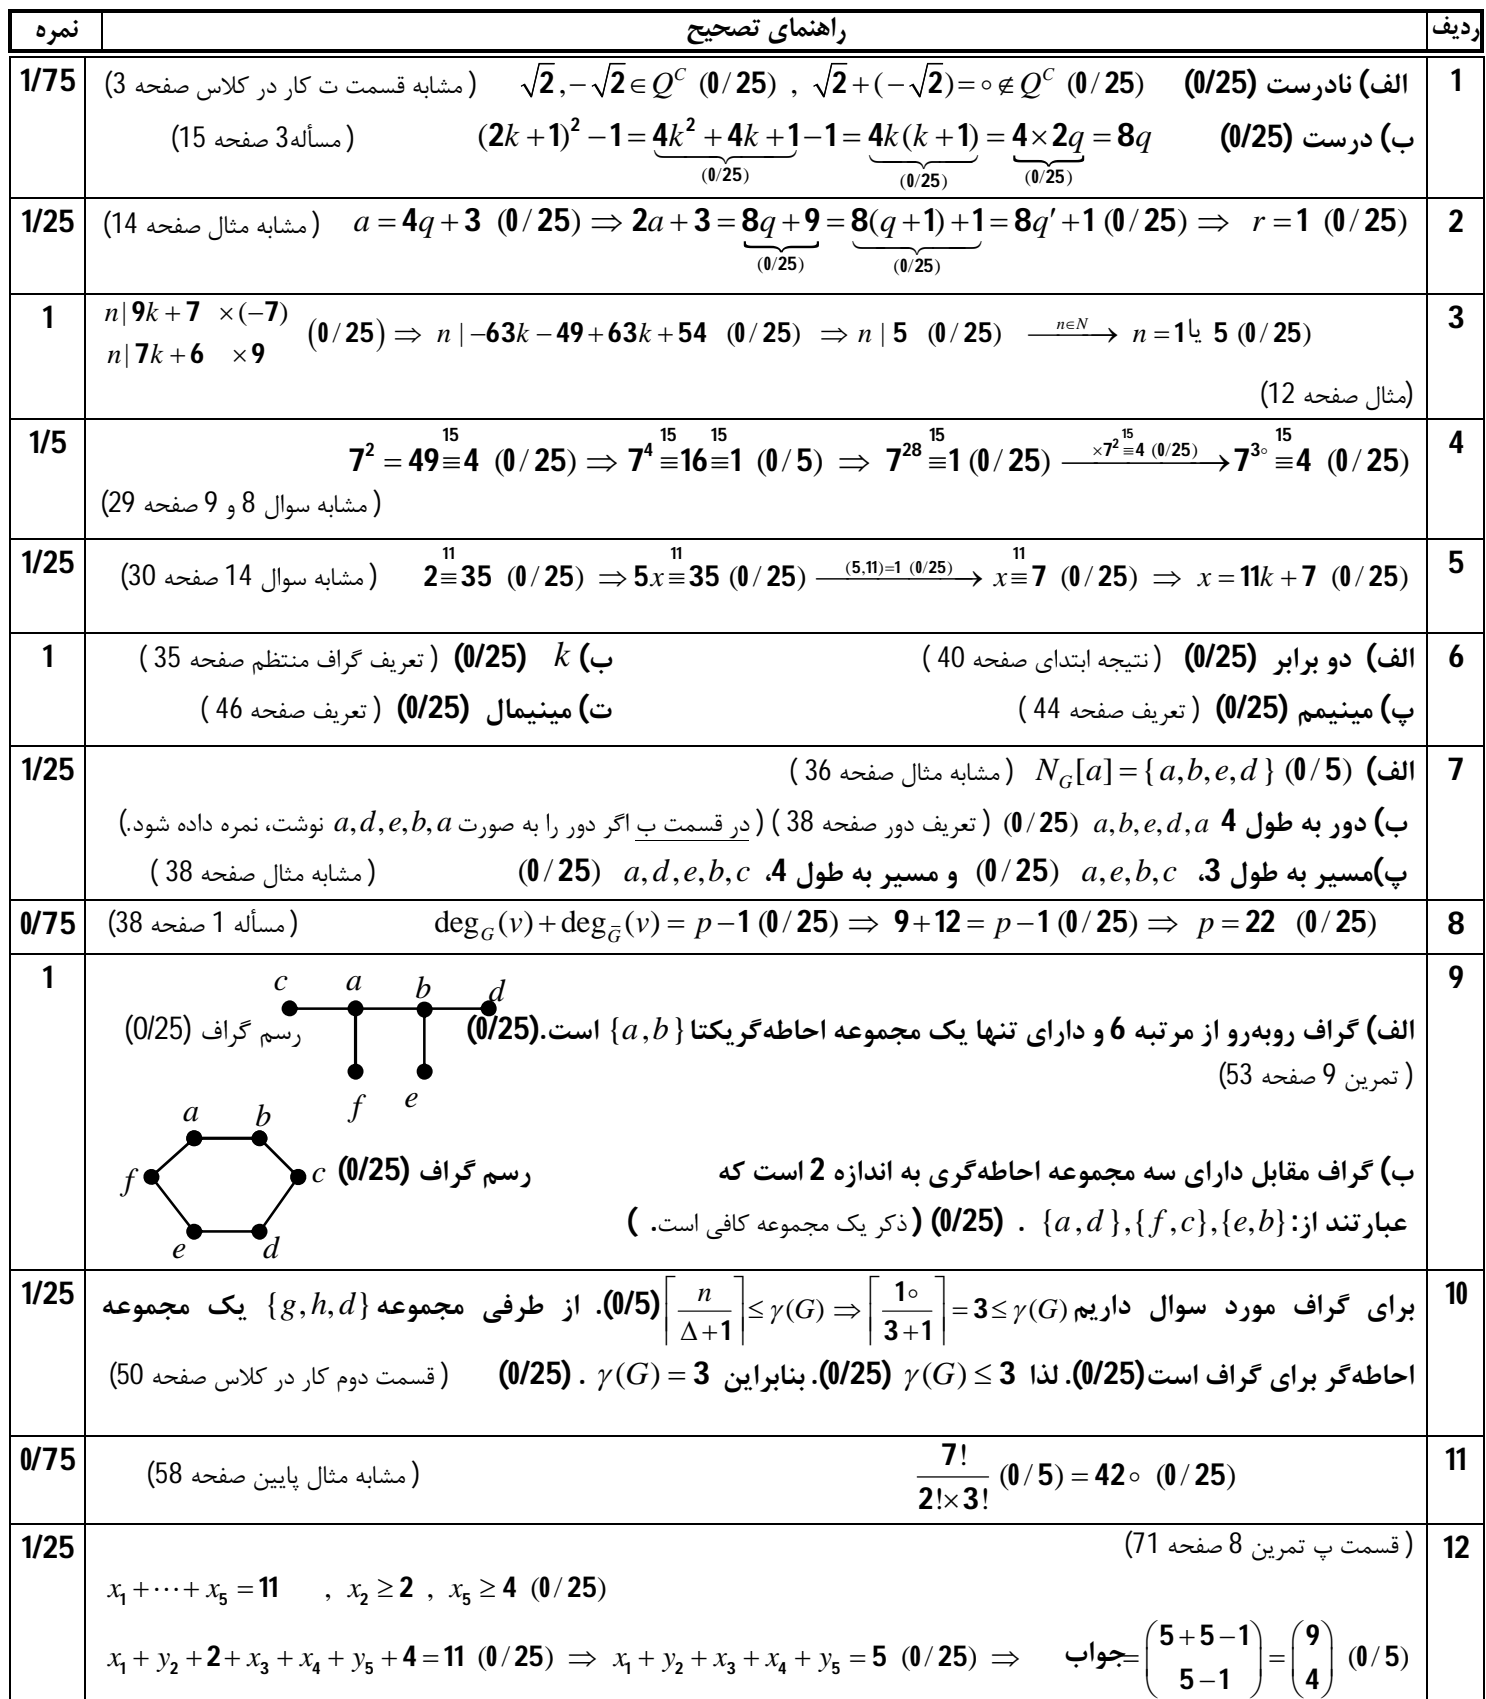 ردیف راهنمای تصحیح نمره
1 الف) نادرست (0/25) √2 , −√2 ∈ Q^C (0/25) , √2 + (−√2) = ∘ ∉ Q^C (0/25) ( مشابه قسمت ت کار در کلاس صفحه 3) 1/75
ب) درست (0/25) (2k+1)² − 1 = 4k² + 4k + 1 − 1 = 4k(k+1) = 4×2q = 8q ( مسأله3 صفحه 15)
(0/25) (0/25) (0/25)
2 a = 4q + 3 (0/25) ⇒ 2a + 3 = 8q + 9 = 8(q+1)+1 = 8q′ + 1 (0/25) ⇒ r = 1 (0/25) ( مشابه مثال صفحه 14) 1/25
(0/25) (0/25)
3 n | 9k + 7 ×(−7) 1
n | 7k + 6 ×9 (0/25) ⇒ n | −63k − 49 + 63k + 54 (0/25) ⇒ n | 5 (0/25) —n∈N→ n = 1 یا 5 (0/25)
(مثال صفحه 12)
4 7² = 49 ≡¹⁵ 4 (0/25) ⇒ 7⁴ ≡¹⁵ 16 ≡¹⁵ 1 (0/5) ⇒ 7²⁸ ≡¹⁵ 1 (0/25) —×7² ≡¹⁵ 4 (0/25)→ 7³∘ ≡¹⁵ 4 (0/25) 1/5
( مشابه سوال 8 و 9 صفحه 29)
5 2 ≡¹¹ 35 (0/25) ⇒ 5x ≡¹¹ 35 (0/25) —(5,11)=1 (0/25)→ x ≡¹¹ 7 (0/25) ⇒ x = 11k + 7 (0/25) ( مشابه سوال 14 صفحه 30) 1/25
6 الف) دو برابر (0/25) ( نتیجه ابتدای صفحه 40 ) ب) k (0/25) ( تعریف گراف منتظم صفحه 35 ) 1
پ) مینیمم (0/25) ( تعریف صفحه 44 ) ت) مینیمال (0/25) ( تعریف صفحه 46 )
7 الف) N_G[a] = {a,b,e,d} (0/5) ( مشابه مثال صفحه 36 ) 1/25
ب) دور به طول 4 a,b,e,d,a (0/25) ( تعریف دور صفحه 38 ) ( در قسمت ب اگر دور را به صورت a,d,e,b,a نوشت، نمره داده شود.)
پ)مسیر به طول 3، a,e,b,c (0/25) و مسیر به طول 4، a,d,e,b,c (0/25) ( مشابه مثال صفحه 38 )
8 deg_G(v) + deg_Ḡ(v) = p − 1 (0/25) ⇒ 9 + 12 = p − 1 (0/25) ⇒ p = 22 (0/25) ( مسأله 1 صفحه 38) 0/75
9 c a b d 1
الف) گراف روبه‌رو از مرتبه 6 و دارای تنها یک مجموعه احاطه‌گریکتا {a,b} است.(0/25) رسم گراف (0/25)
( تمرین 9 صفحه 53)
f e
a b
ب) گراف مقابل دارای سه مجموعه احاطه‌گری به اندازه 2 است که رسم گراف (0/25) c f
عبارتند از: {a,d},{f,c},{e,b} . (0/25) ( ذکر یک مجموعه کافی است. )
e d
10 برای گراف مورد سوال داریم ⌈n/(Δ+1)⌉ ≤ γ(G) ⇒ ⌈1∘/(3+1)⌉ = 3 ≤ γ(G) (0/5). از طرفی مجموعه {g,h,d} یک مجموعه 1/25
احاطه‌گر برای گراف است(0/25). لذا γ(G) ≤ 3 (0/25). بنابراین γ(G) = 3 . (0/25) ( قسمت دوم کار در کلاس صفحه 50)
11 7!/(2!×3!) (0/5) = 42∘ (0/25) ( مشابه مثال پایین صفحه 58) 0/75
12 ( قسمت پ تمرین 8 صفحه 71) 1/25
x₁ + ⋯ + x₅ = 11 , x₂ ≥ 2 , x₅ ≥ 4 (0/25)
x₁ + y₂ + 2 + x₃ + x₄ + y₅ + 4 = 11 (0/25) ⇒ x₁ + y₂ + x₃ + x₄ + y₅ = 5 (0/25) ⇒ جواب = (5+5−1 / 5−1) = (9 / 4) (0/5)